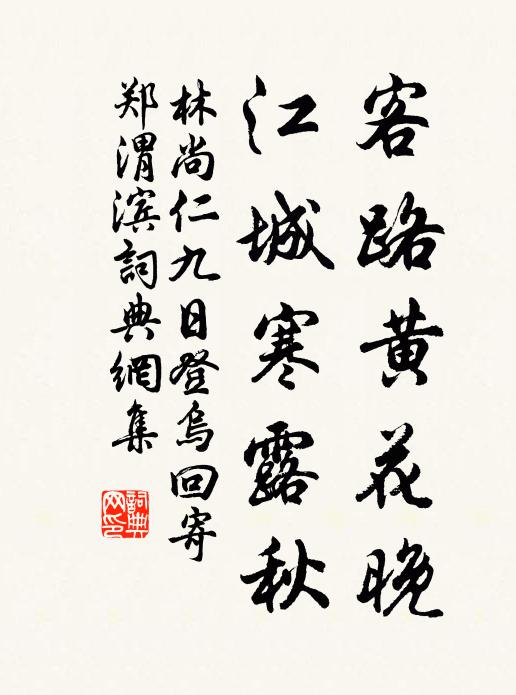 客路黄花晚
江城寒露秋
林尚仁九日登乌回寄
郑渭滨詞典網集
詞典网印